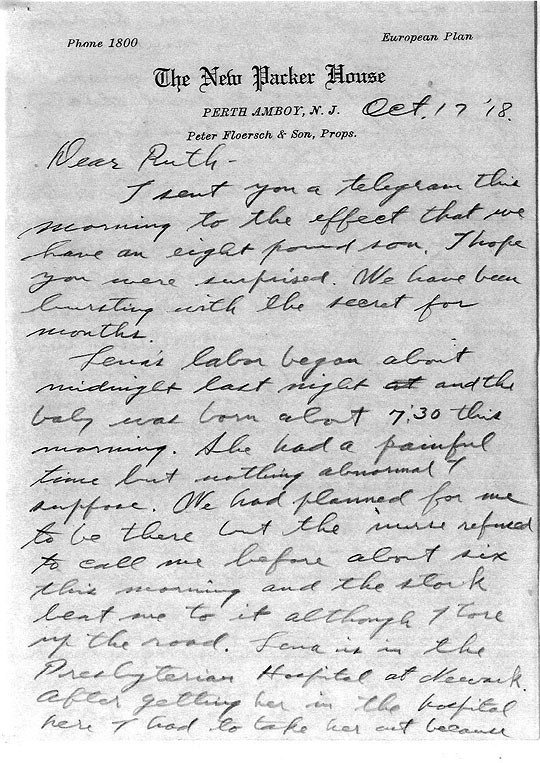 Phone 1800
European Plan
The New Parker House
PERTH AMBOY, N. J. Oct. 17 '18.
Peter Floersch & Son, Props.
Dear Ruth -
I sent you a telegram this
morning to the effect that we
have an eight pound son. I hope
you were surprised. We have been
bursting with the secret for
months.
Lena's labor began about
midnight last night at and the
baby was born about 7:30 this
morning. She had a painful
time but nothing abnormal I
suppose. We had planned for me
to be there but the nurse refused
to call me before about six
this morning and the stork
beat me to it although I tore
up the road. Lena is in the
Presbyterian Hospital at Newark.
After getting her in the hospital
here I had to take her out because